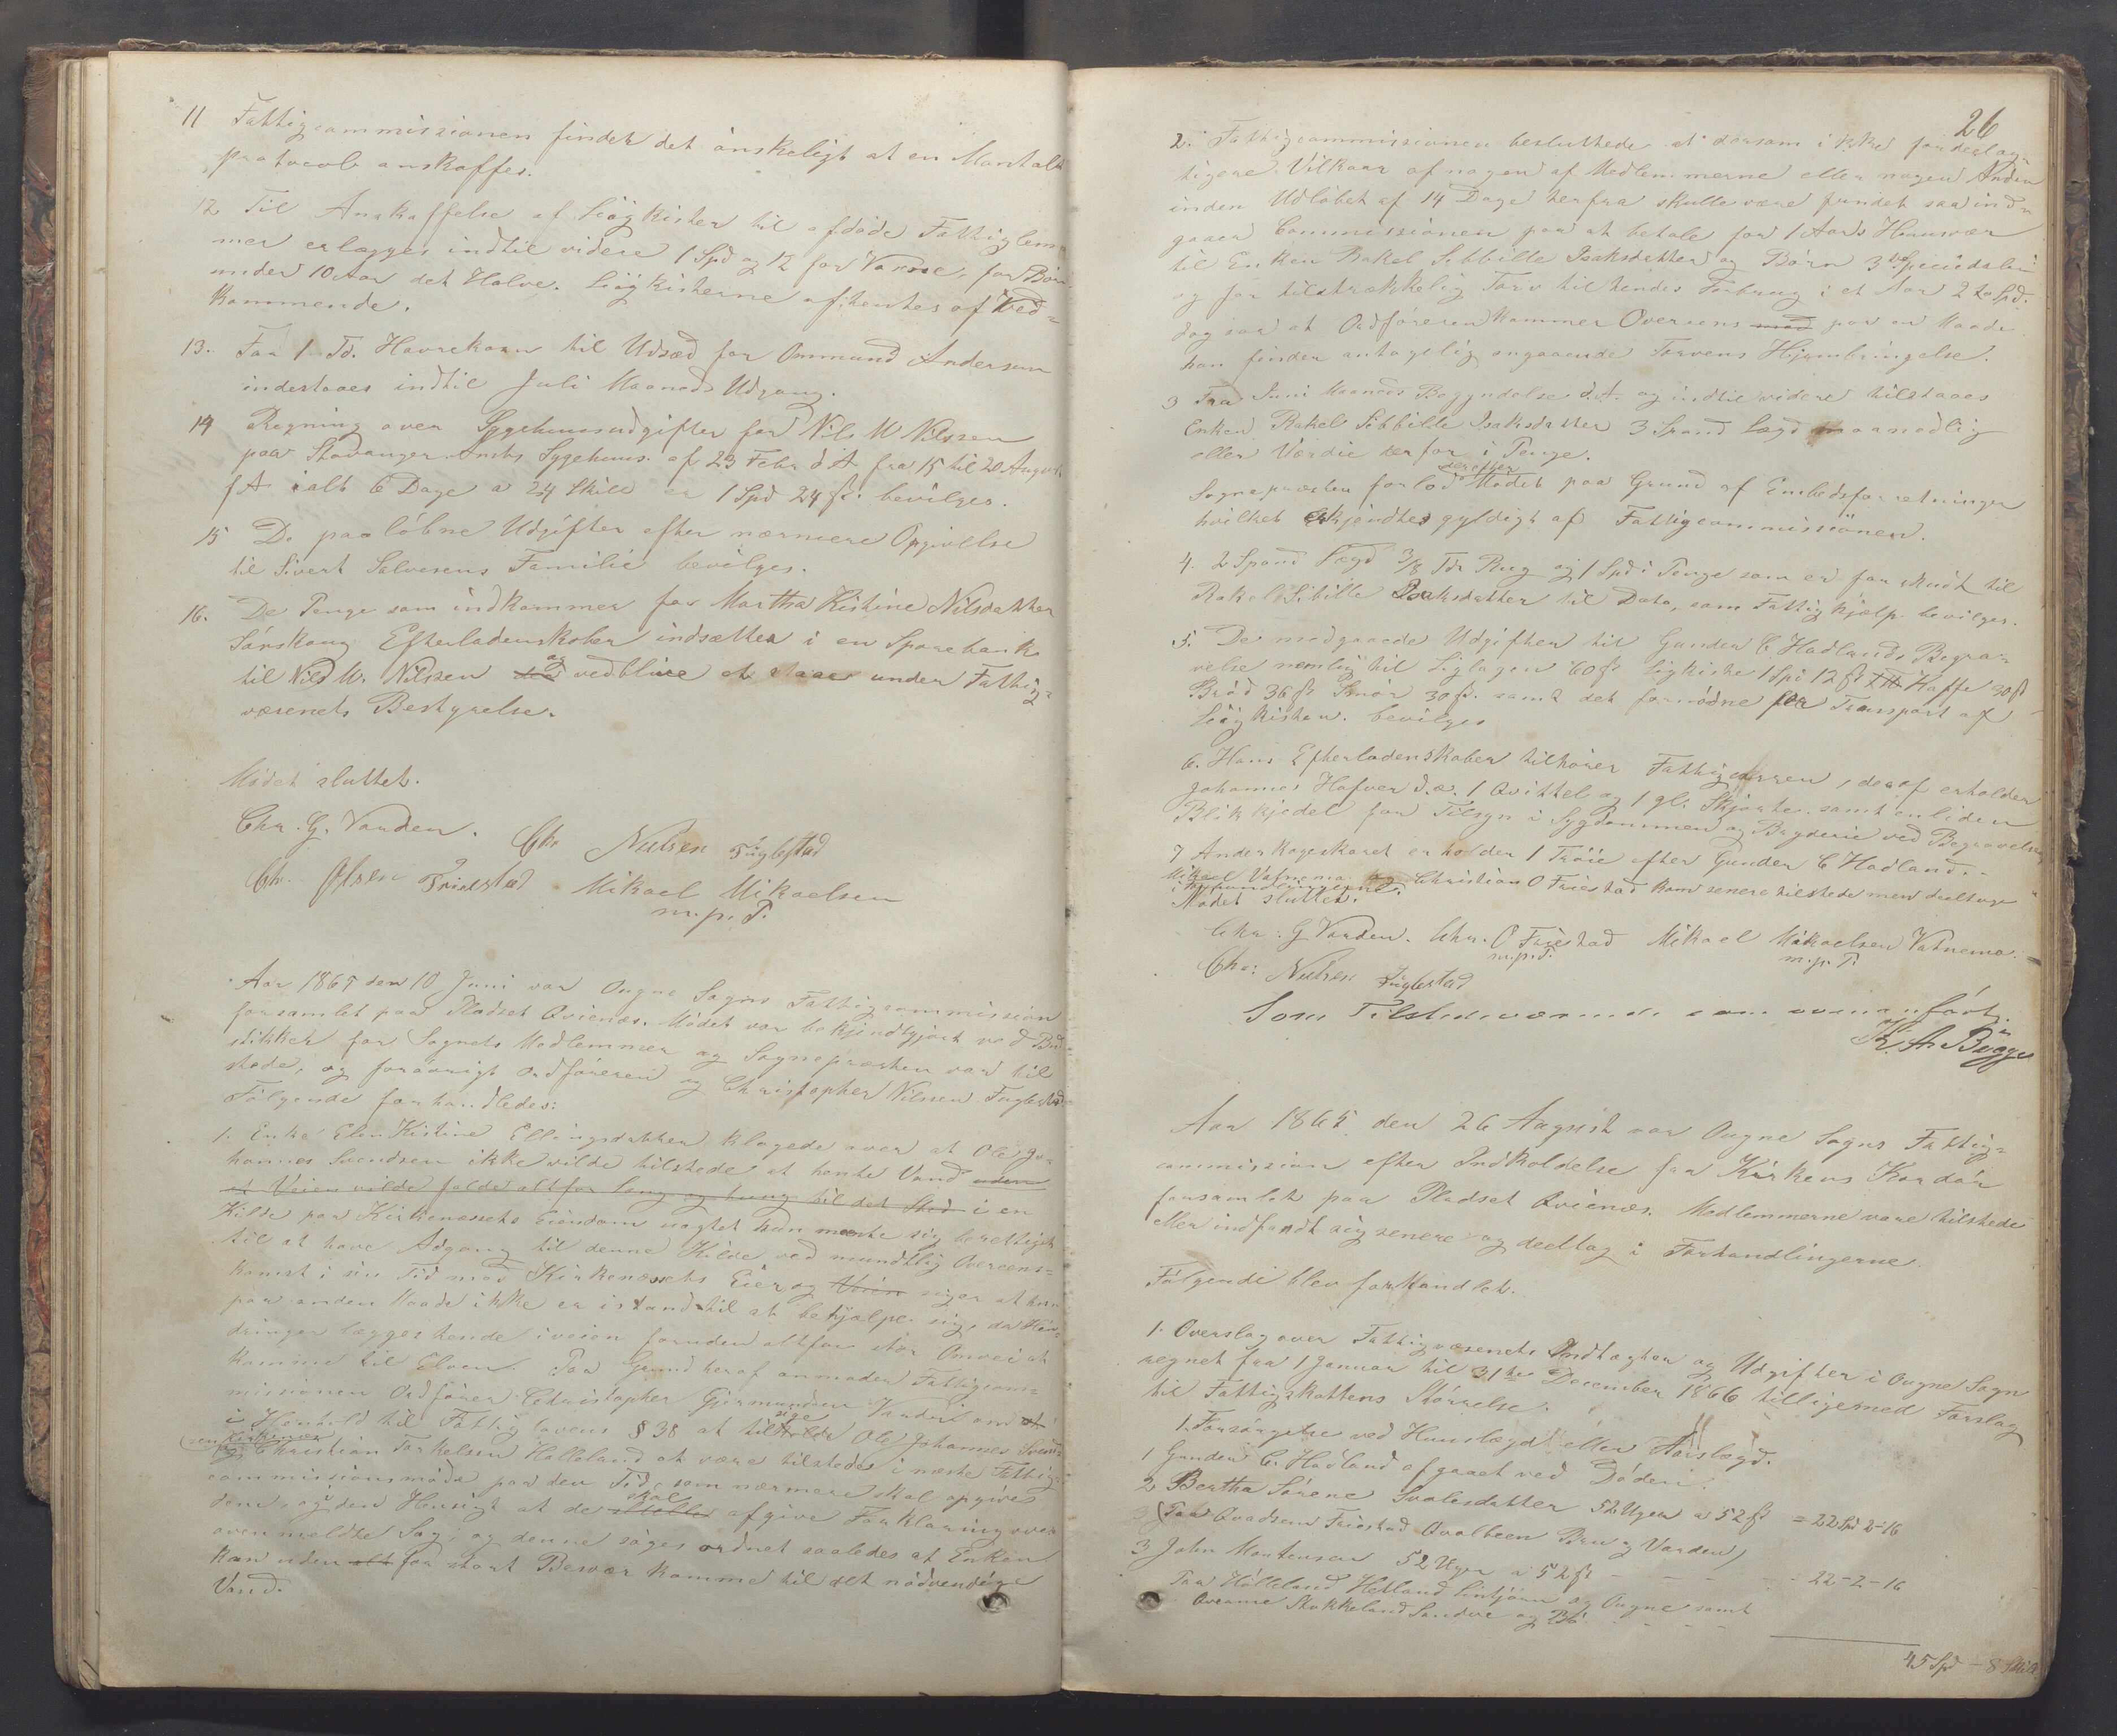 11 Fattigcommissionen finder det önskeligt at en Mantals
protocol anskaffes.
12 Til Anskaffelse af Liigkister til afdöde Fattiglem
mer erlægges indtil videre 1 Spd og 12 for Voxne, for Börn
under 10 Aar det Halve. Liigkisterne afhentes af Ved=
kommende.
13. Faa 1 Td. Havrekorn til Udsæd for Ommund Andersen
indestaaes indtil Juli Maaneds Udgang.
14 Regning over Sygehuusudgifter for Nils W Nilssen
paa Stavanger Amts Sygehuus af 23 Febr d A fra 15 til 20 August
f A ialt 6 Dage a 24 Skill er 1 Spd 24 ß. bevilges.
15 De paalöbne Udgifter efter nærmere Opgivelse
til Sivert Salvesens Familie bevilges.
16. De Penge som indkommer for Martha Kistine Nilsdatter
Sörskoug Efterladenskaber indsættes i en Sparebank
til Nils W. Nilssen og vedblive at staae under Fattig=
væsenets Bestyrelse.
Mödet sluttet.
Chr. G. Varden. Chr Nielsen Fuglestad
Chr. Olsen Friestad Mikael Mikaelsen
m. p. P.
Aar 1865 den 10 Juni var Ougne Sogns Fattigcommission
forsamlet paa Pladset Qvienæs. Mödet var bekjendtgjort ved Bud
stikker for Sognets Medlemmer og Sognepræsten var til
stede, og forövrigt Ordföreren og Christopher Nilssen Fuglestad
Fölgende forhandledes:
1. Enke Elen Kistine Ellingsdatter klagede over at Ole Jo
hannes Svendsen ikke vilde tilstede at hente Vand uden
at Veien vilde falde altfor lang og tung til det Sted i en
Kilde paa Kirkenæssets Eiendom uagtet hun meente sig berettiget
til at have Adgang til denne Kilde ved mundtlig Overeens=
komst i sin Tid med Kirkenæssets Eier og siger at hun
paa anden Maade ikke er istand til at behjælpe sig, da Hin=
dringer lægges hende iveien foruden altfor stor Omvei at
komme til Elven. Paa Grund heraf anmoder Fattigcom=
missionen Ordförer Christopher Gjermundsen Varden om at
i Henhold til Fattiglovens § 38 at tilsige Ole Johannes Svend
sen Kirkenæs
og Christian Torkelsen Holleland at være tilstede i næste Fattig
commissionsmöde paa den Tid, som nærmere skal opgives
dem, og i den Hensigt at de skal afgive Forklaring over
ovenmeldte Sag; og denne söges ordnet saaledes at Enken
kan uden alt for stort Besvær komme til det nödvendige
Vand.
26
2. Fattigcommissionen besluttede at dersom ikke fordelag=
tigere Vilkaar af nogen af Medlemmerne eller nogen Anden
inden Udlöbet af 14 Dage herfra skulle være fundet saa ind=
gaaer Commissionen paa at betale for 1 Aars Huusvær
til Enken Rakel Sibbille Isaksdatter og Börn 3 Speciedaler
og for tilstrækkelig Torv til hendes Forbrug i et Aar 2 Spd.
dog saa at Ordföreren kommer Overens med paa en Maade
han finder antagelig angaaende Torvens Hjembringelse.
3 Fra Juni Maaneds Begyndelse d. A. og indtil videre tilstaaes
Enken Rakel Sibbille Isaksdatter 3 Spand Lægd maanedlig
eller Værdie derfor i Penge.
Sognepræsten forlod derefter Mödet paa Grund af Embedsforretninger
hvilket erkjendtes gyldigt af Fattigcommissionen.
4. 2 Spand Lægd 3/8 Tdr Rug og 1 Spd i Penge som er forskudt til
Rakel Sibille Isaksdatter til Dato, som Fattighjælp bevilges.
5. De medgaaede Udgifter til Gunder C Hadlands Begra=
velse nemlig til Liglagen 60 ß Ligkiste 1 Spd 12 ß Kaffe 30 ß
Bröd 36 ß Smör 30 ß. samt det fornödne for Transport af
Liigkisten. bevilges
6. Hans Efterladenskaber tilhörer Fattigcassen, deraf erholder
Johannes Hafver d.æ. 1 Qvittel og 1 gl. Skjorte samt en liden
Blikkjedel for Tilsyn i Sygdommen og Bryderie ved Begravelsen
7 Anders Hageskaret erholder 1 Tröie efter Gunder C Hadland.
Mikael Vatnemo og Christian O Friestad kom senere tilstede men deeltoge
i Forhandlingerne.
Mödet sluttet.
Chr: G Varden. Chr. O Friestad Mikael Mikaelsen Vatnemo.
m.p.P. m.p.P.
Chr: Nielsen Fuglestad
Som Tilstedeværende som ovenanfört.
A. Bugge
Aar 1865 den 26 August var Ougne Sogns Fattig=
commission efter Indkaldelse fra Kirkens Kordör
forsamlet paa Pladset Qvienæs. Medlemmerne vare tilstede
eller indfandt sig senere og deeltog i Forhandlingerne.
Fölgende blev forhandlet.
1. Overslag over Fattigvæsenets Indtægter og Udgifter i Ougne Sogn
regnet fra 1 Januar til 31te December 1866 tilligemed Forslag
til Fattigskattens Störrelse.
1. Forsörgelse ved Huuslægd eller Aarslægd.
1 Gunder C. Hadland afgaaet ved Döden.
2 Bertha Sörene Svalesdatter 52 Uger a 52 ß = 22 Spd 2-16
(Paa Qvadsem Friestad Qvalbeen Bru og Varden)
3 John Mortensen 52 Uger a 52 ß - - - 22-2-16
Paa Hölleland Hetland Lintjörn og Ougne samt
Overaue Stokkeland Sandve og Bö
45 Spd - 8 Skill